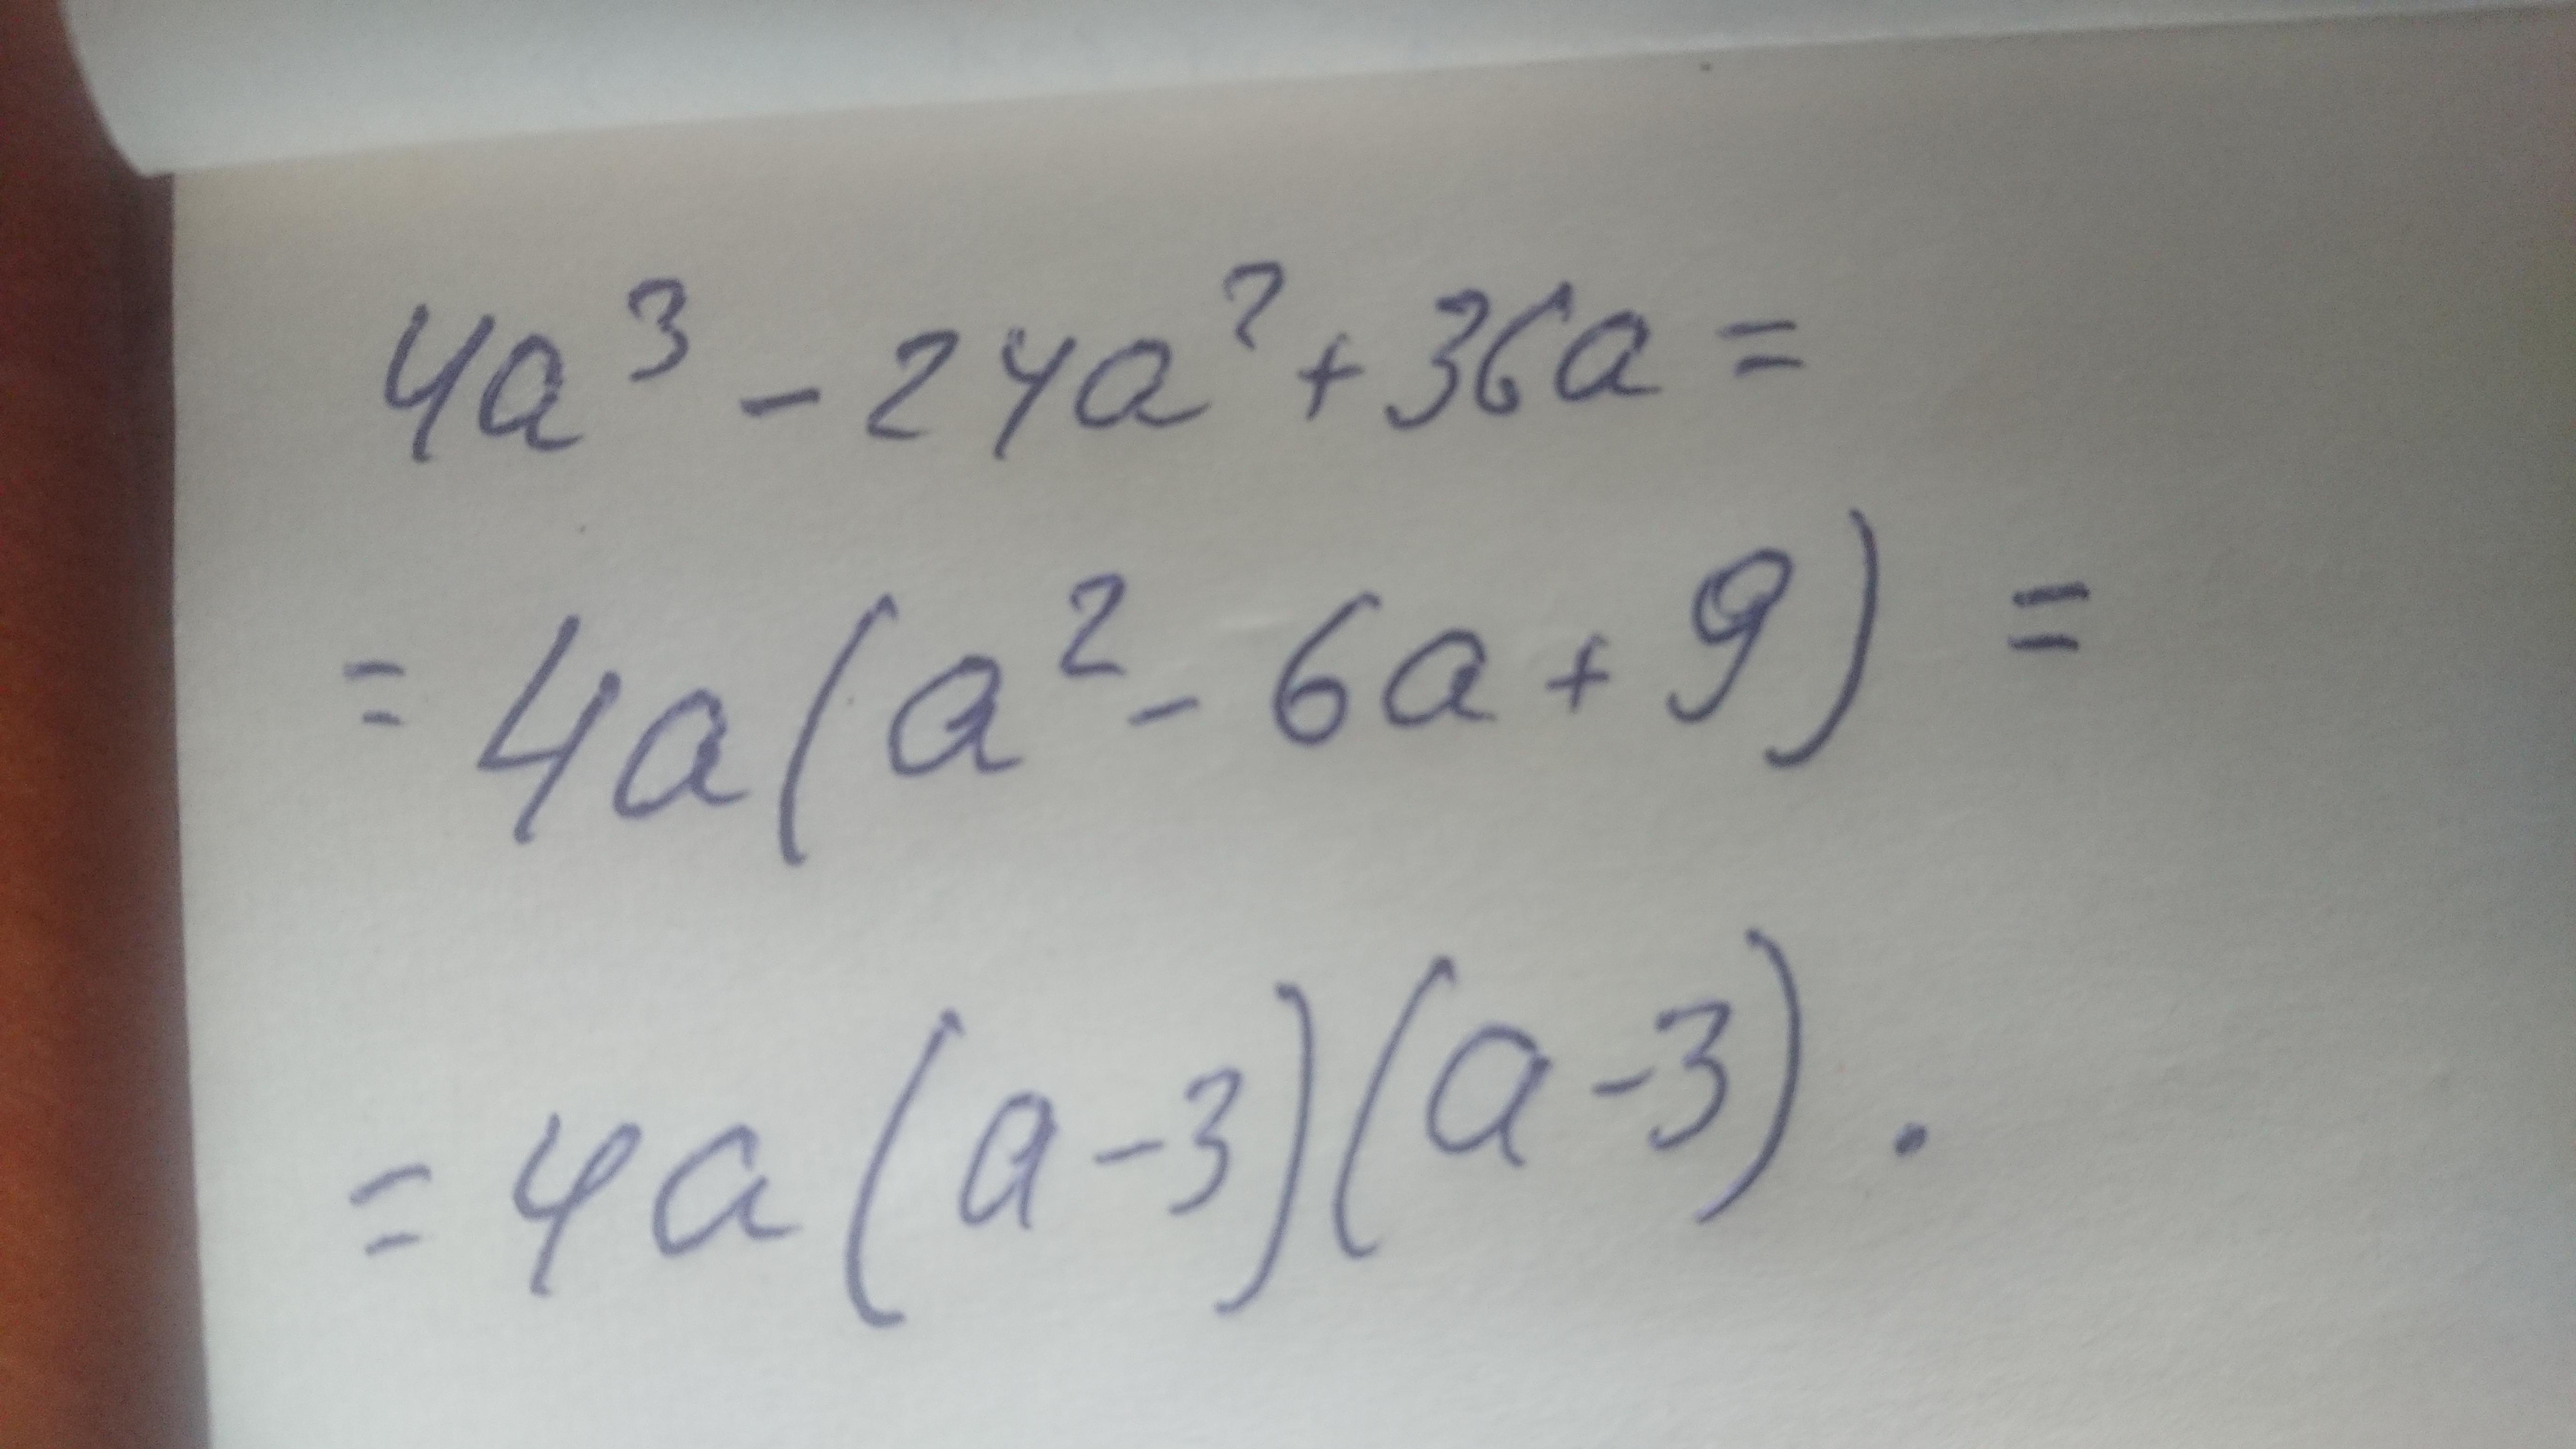 4a³ - 24a² + 36a =
= 4a(a² - 6a + 9) =
= 4a(a - 3)(a - 3).